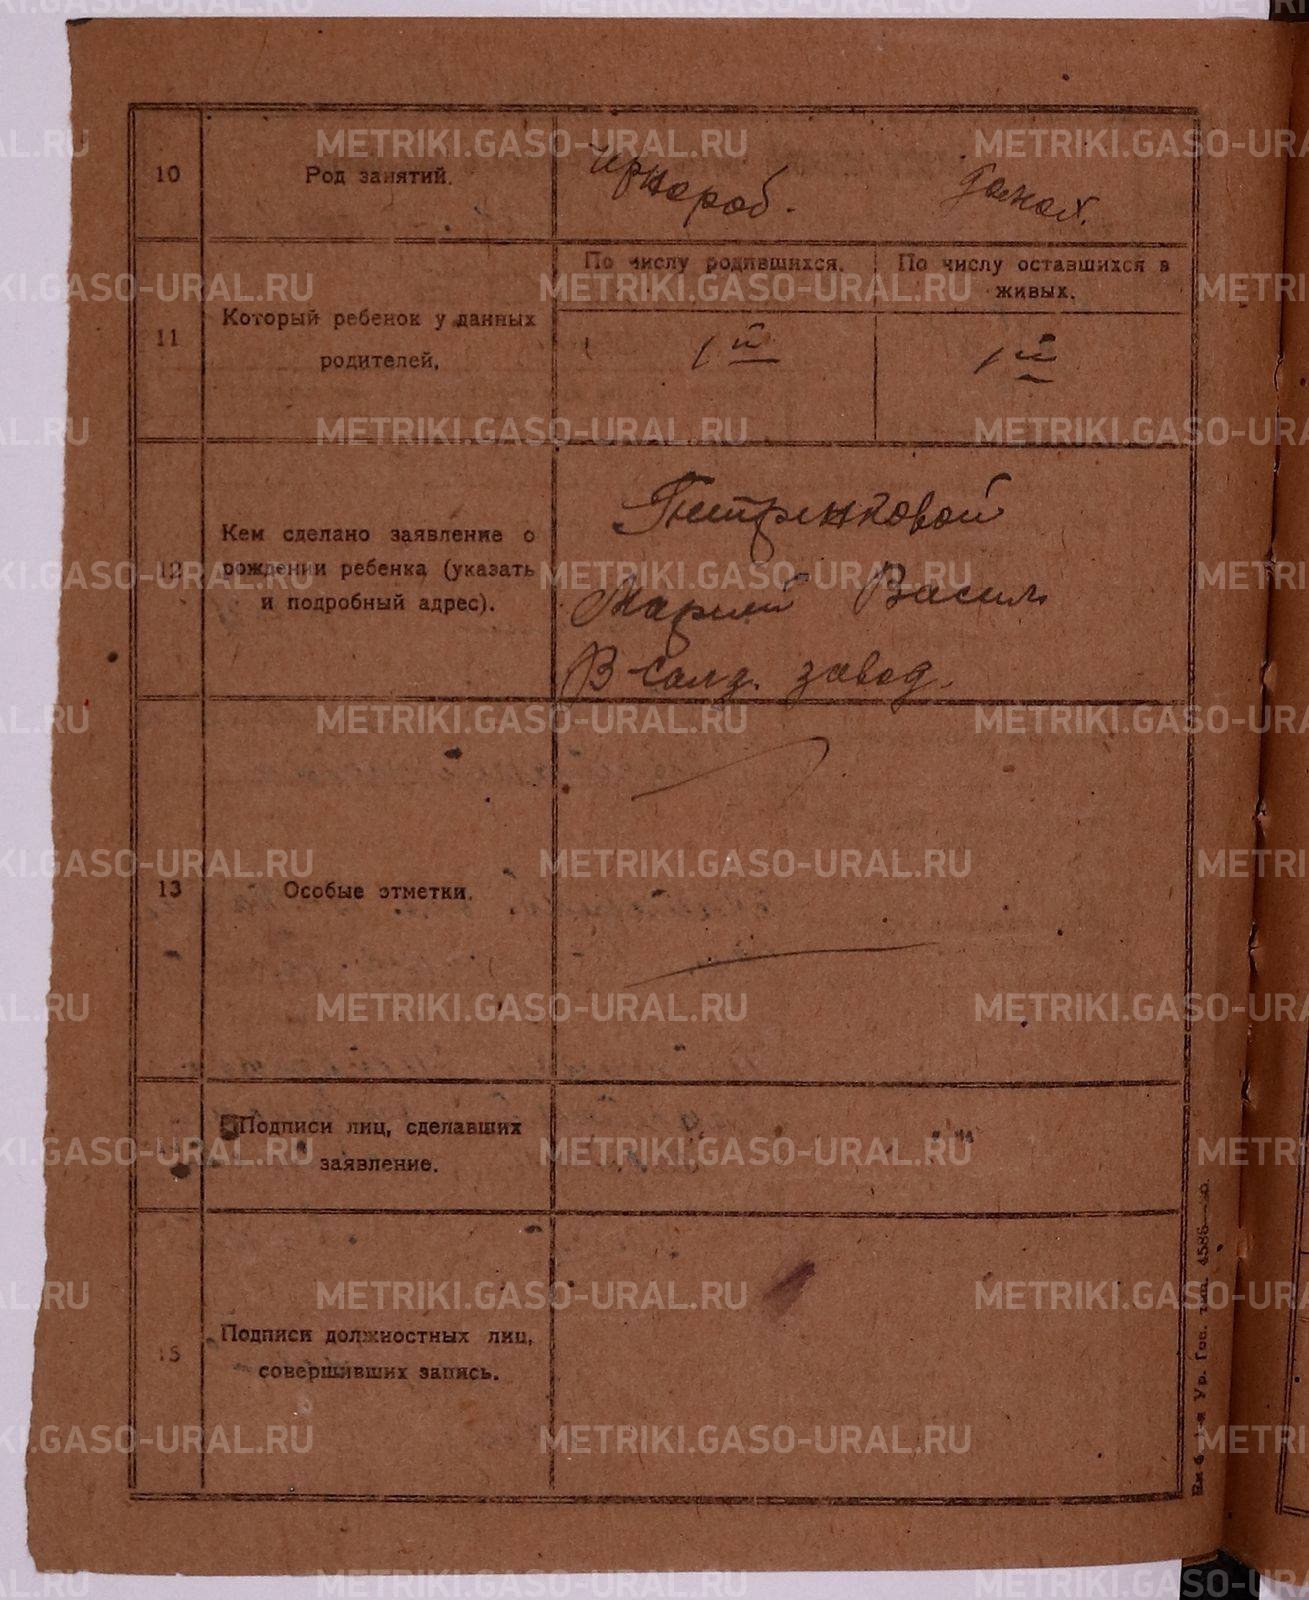 10
Род занятий.
чернораб.
домох.
11
Который ребенок у данных
родителей.
По числу родившихся.
По числу оставшихся в
живых.
1й
1й
12
Кем сделано заявление о
рождении ребенка (указать
и подробный адрес).
Марией Васил.
В-Салд. завод.
13
Особые отметки.
Подписи лиц, сделавших
заявление.
15
Подписи должностных лиц,
совершивших запись.
Ур. Гос. Тип. 4586—20.
METRIKI.GASO-URAL.RU